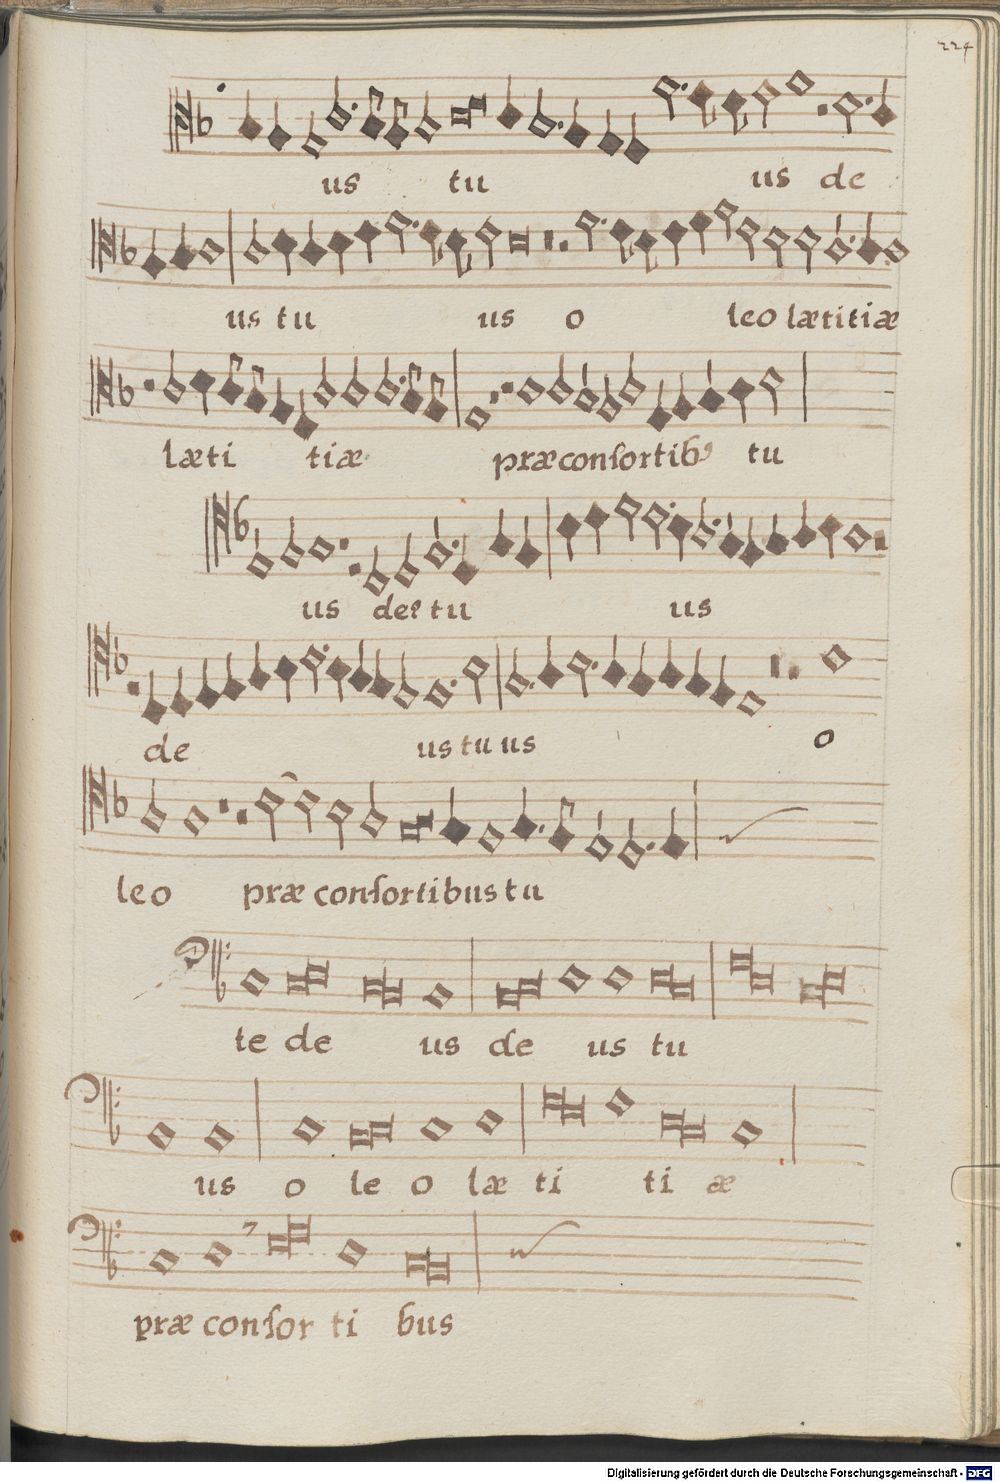 224
us tu us de
us tu us o leo lætitiæ
læti tiæ præconsortib9 tu
us de9 tu us
de us tu us o
leo præ consortibus tu
te de us de us tu
us o le o læ ti ti æ
præ consor ti bus
Digitalisierung gefördert durch die Deutsche Forschungsgemeinschaft - DFG